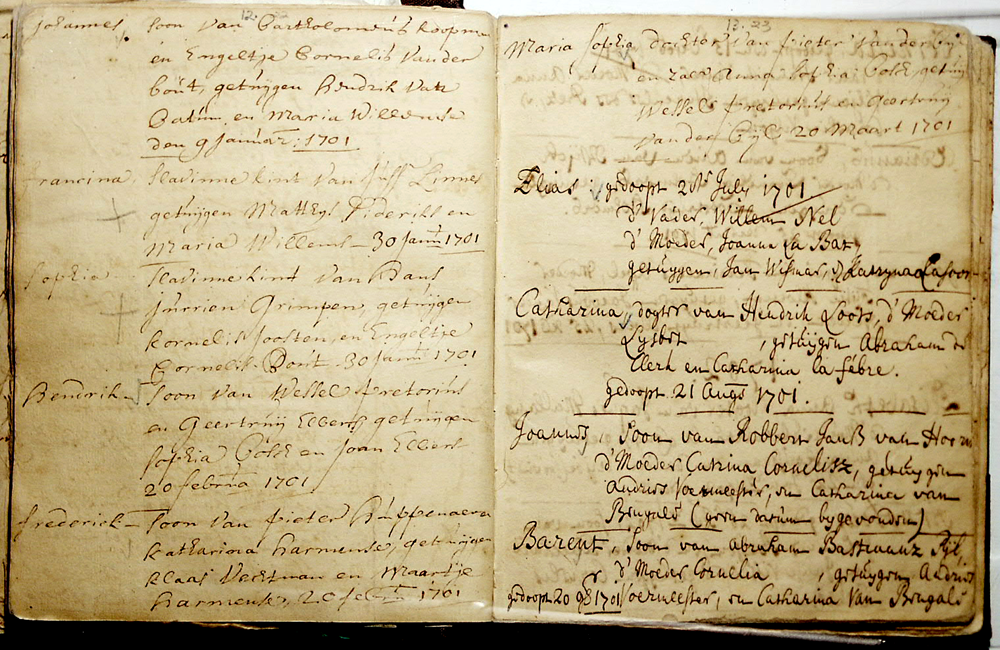 12. 22
Johannes, Soon van Bartholomeus koopman
en Engeltje Cornelis vander
bout, getuijgen Hendrik van
en Maria Willems
den 9 Januar: 1701
Francina, slavinne kint van Juff Linnes
getuijgen Matthys Diderikse en
Maria Willems 30 Janu 1701
Sophia slavinne kint van Hans
Jurrien Grimpen, getuijgen
kornelis Joosten, en Engeltje
Cornelis Bout. 30 Janu 1701
Hendrik Soon van Wessel Pretorius
en Geertruij Elberss getuijgen
Sophia en Joan Elbers
20 februa 1701
frederick Soon van Pieter
katharina harmense, getuijgen
klaas Vechtman en Maartje
harmense, 20 feb 1701
13. 23
Maria Sophia dochter van Pieter vander bijl
en Anna Sophia getuijg
Wessel Pretorius en Geertruij
van der Bijl 20 Maart 1701
Elias, gedoopt July 1701
d' Vader, Willem Nel
d' Moeder, Joanna la Bat
getuygen, Jan Wismar, Catryna
Catharina, dogter van Hendrik Loots, d' Moeder
Lysbet , getuijgen Abraham de
Clerk en Catharina la febre.
gedoopt 21 Augs 1701.
Joannis, Soon van Robbert Janß van Hoorn
d' Moeder Catrina Cornelisz, getuygen
Andries Voermeester, en Catharina van
Bengale (geen datum bygevonden)
Barent, Soon van Abraham Bastiaanz Pyl
d' Moeder Cornelia , getuygen Andries
gedoopt 20 1701 Voermeester, en Catharina van Bengale